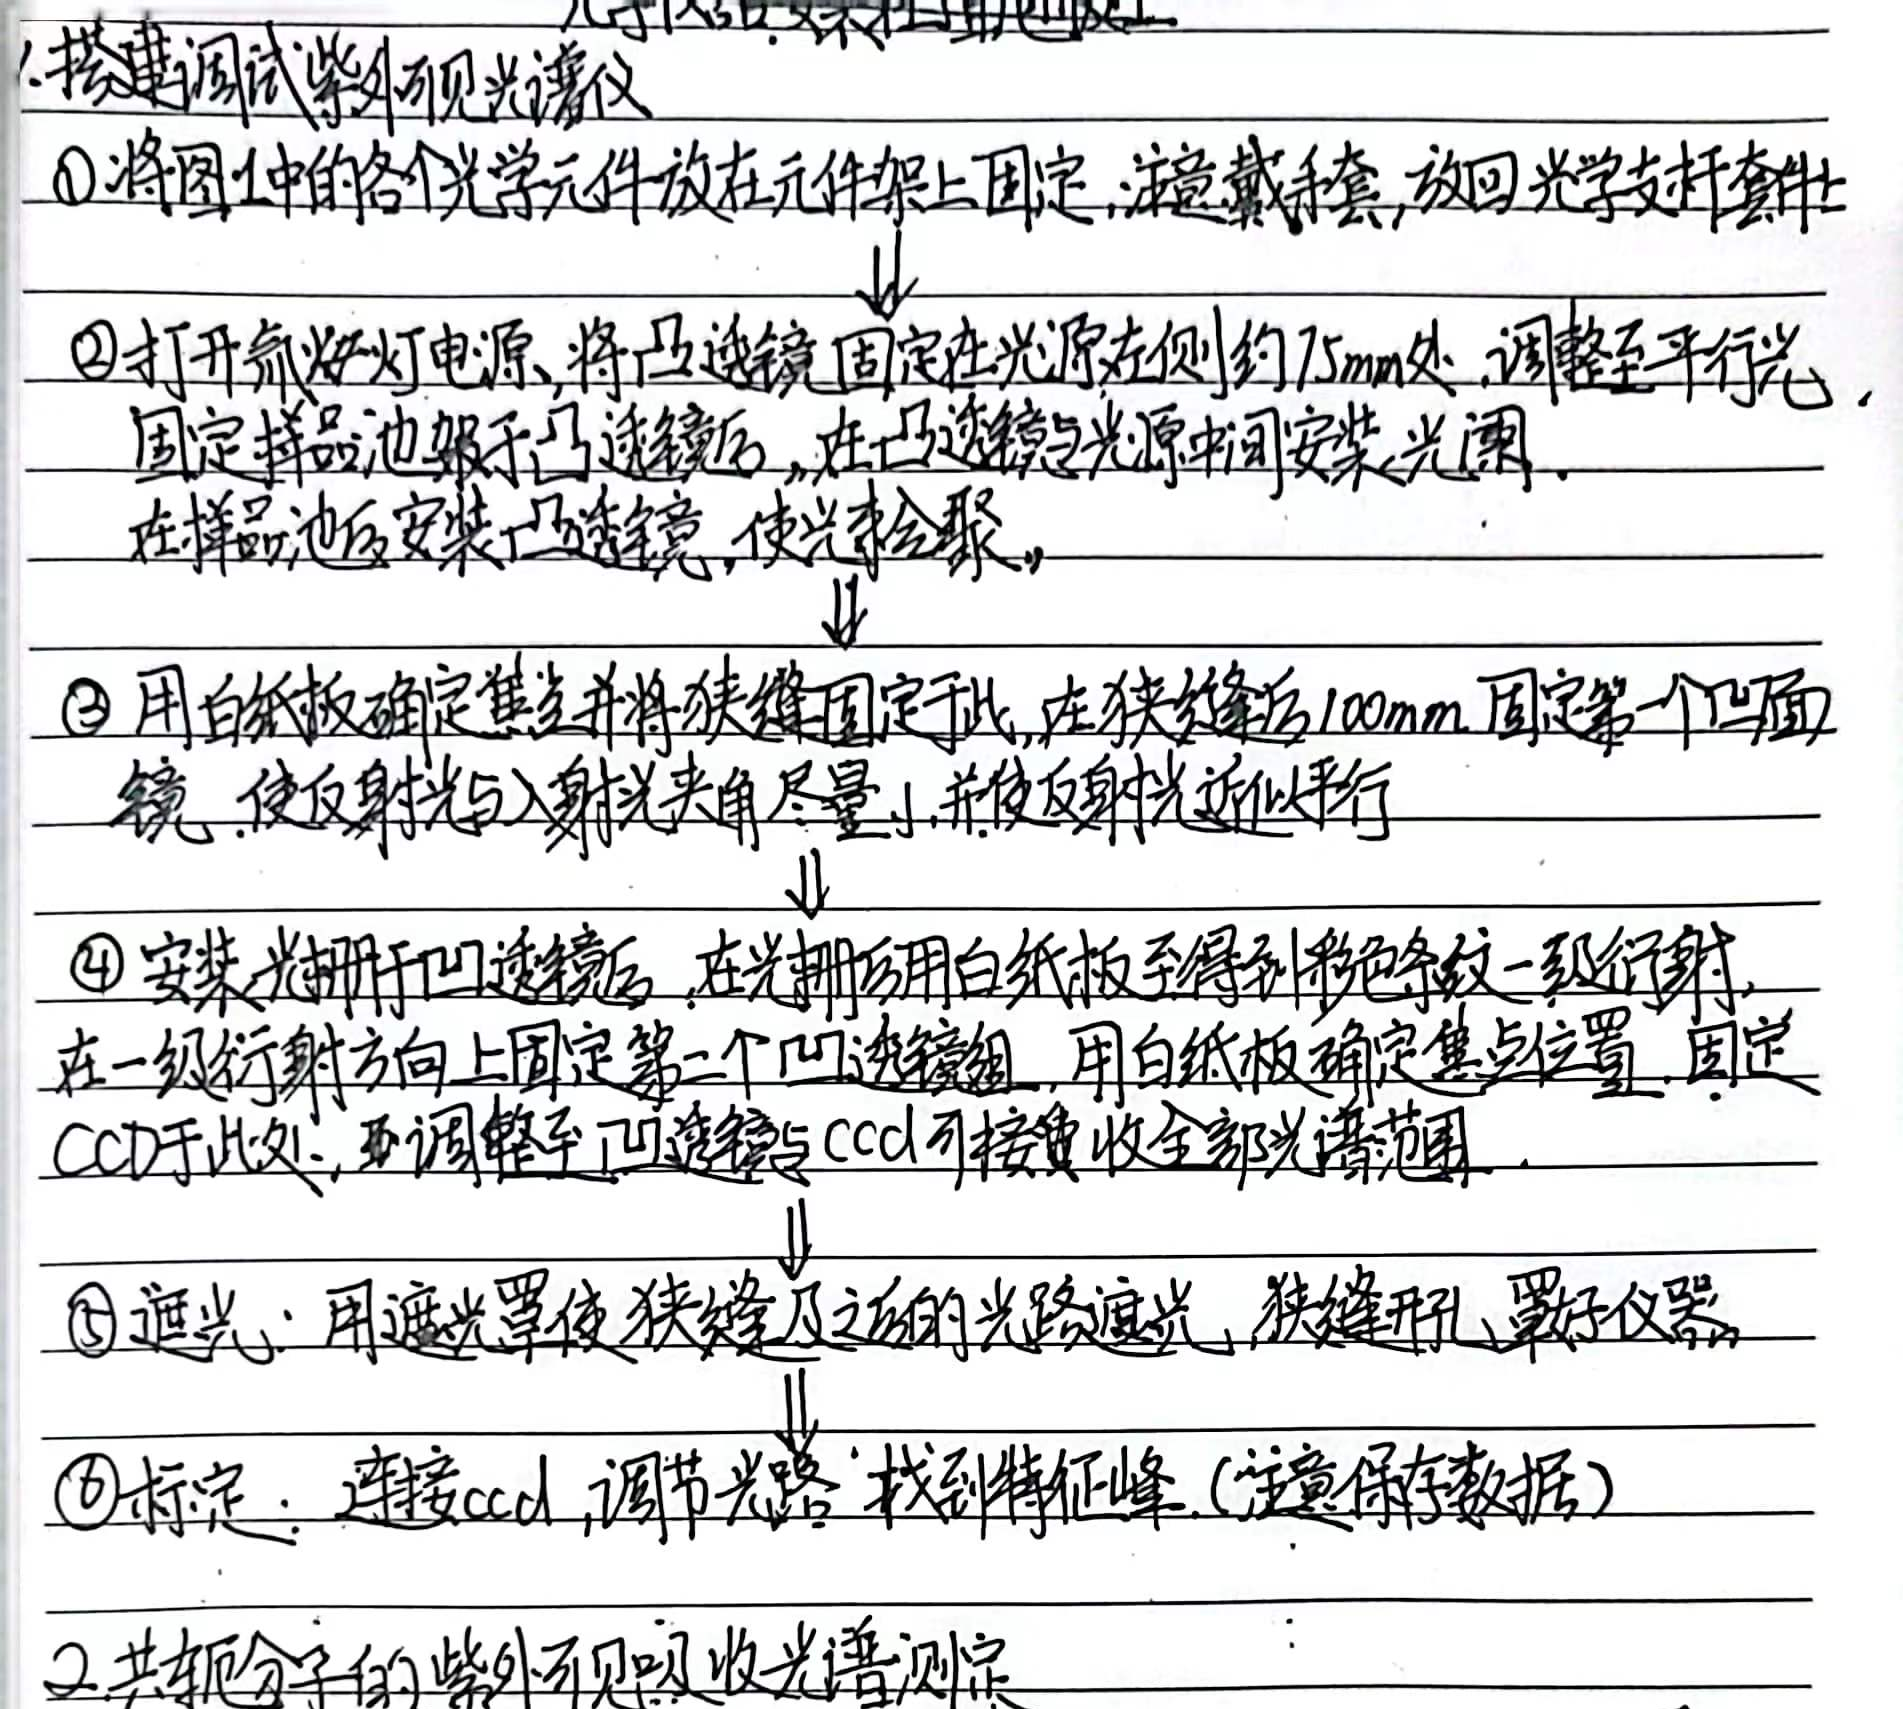 1.搭建调试紫外可见光谱仪
①将图1中的各个光学元件放在元件架上固定,注意戴手套,放回光学支杆套件上
②打开氘灯电源,将凸透镜固定在光源左侧约75mm处,调整至平行光,
固定样品池架于凸透镜后,在凸透镜与光源中间安装光阑.
在样品池后安装凸透镜,使光束会聚。
③用白纸板确定焦点并将狭缝固定于此,在狭缝后100mm固定第一个凹面
镜,使反射光与入射光夹角尽量小,并使反射光近似平行
④安装光栅于凹透镜后,在光栅后用白纸板至得到彩色条纹一级衍射,
在一级衍射方向上固定第二个凹透镜组,用白纸板确定焦点位置,固定
CCD于此处,调整至凹透镜与ccd可接收全部光谱范围.
⑤遮光:用遮光罩使狭缝及之后的光路遮光,狭缝开孔,罩好仪器
⑥标定:连接ccd,调节光路 找到特征峰.(注意保存数据)
2.共轭分子的紫外可见吸收光谱测定